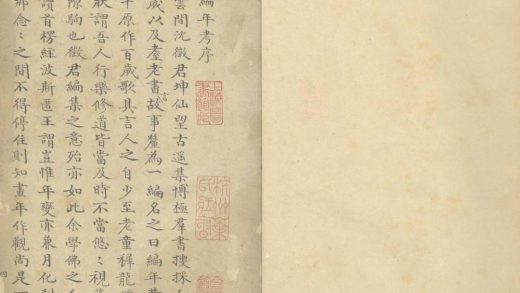 編年考序
雲間沈徵君坤仙望古遥集博極羣書搜採
歲以及耄老書故事釐為一編名之曰編年
平原作百歲歌具言人之自少至老童稺龍
狀謂吾人行樂修道皆當及時不當悠〻視
隙駒也徵君編集之意殆亦如此余學佛之
讀首楞經波斯匿王謂豈惟年變亦兼月化
那念〻之間不得停住則知畫年作觀尚是
杭州葉氏
四